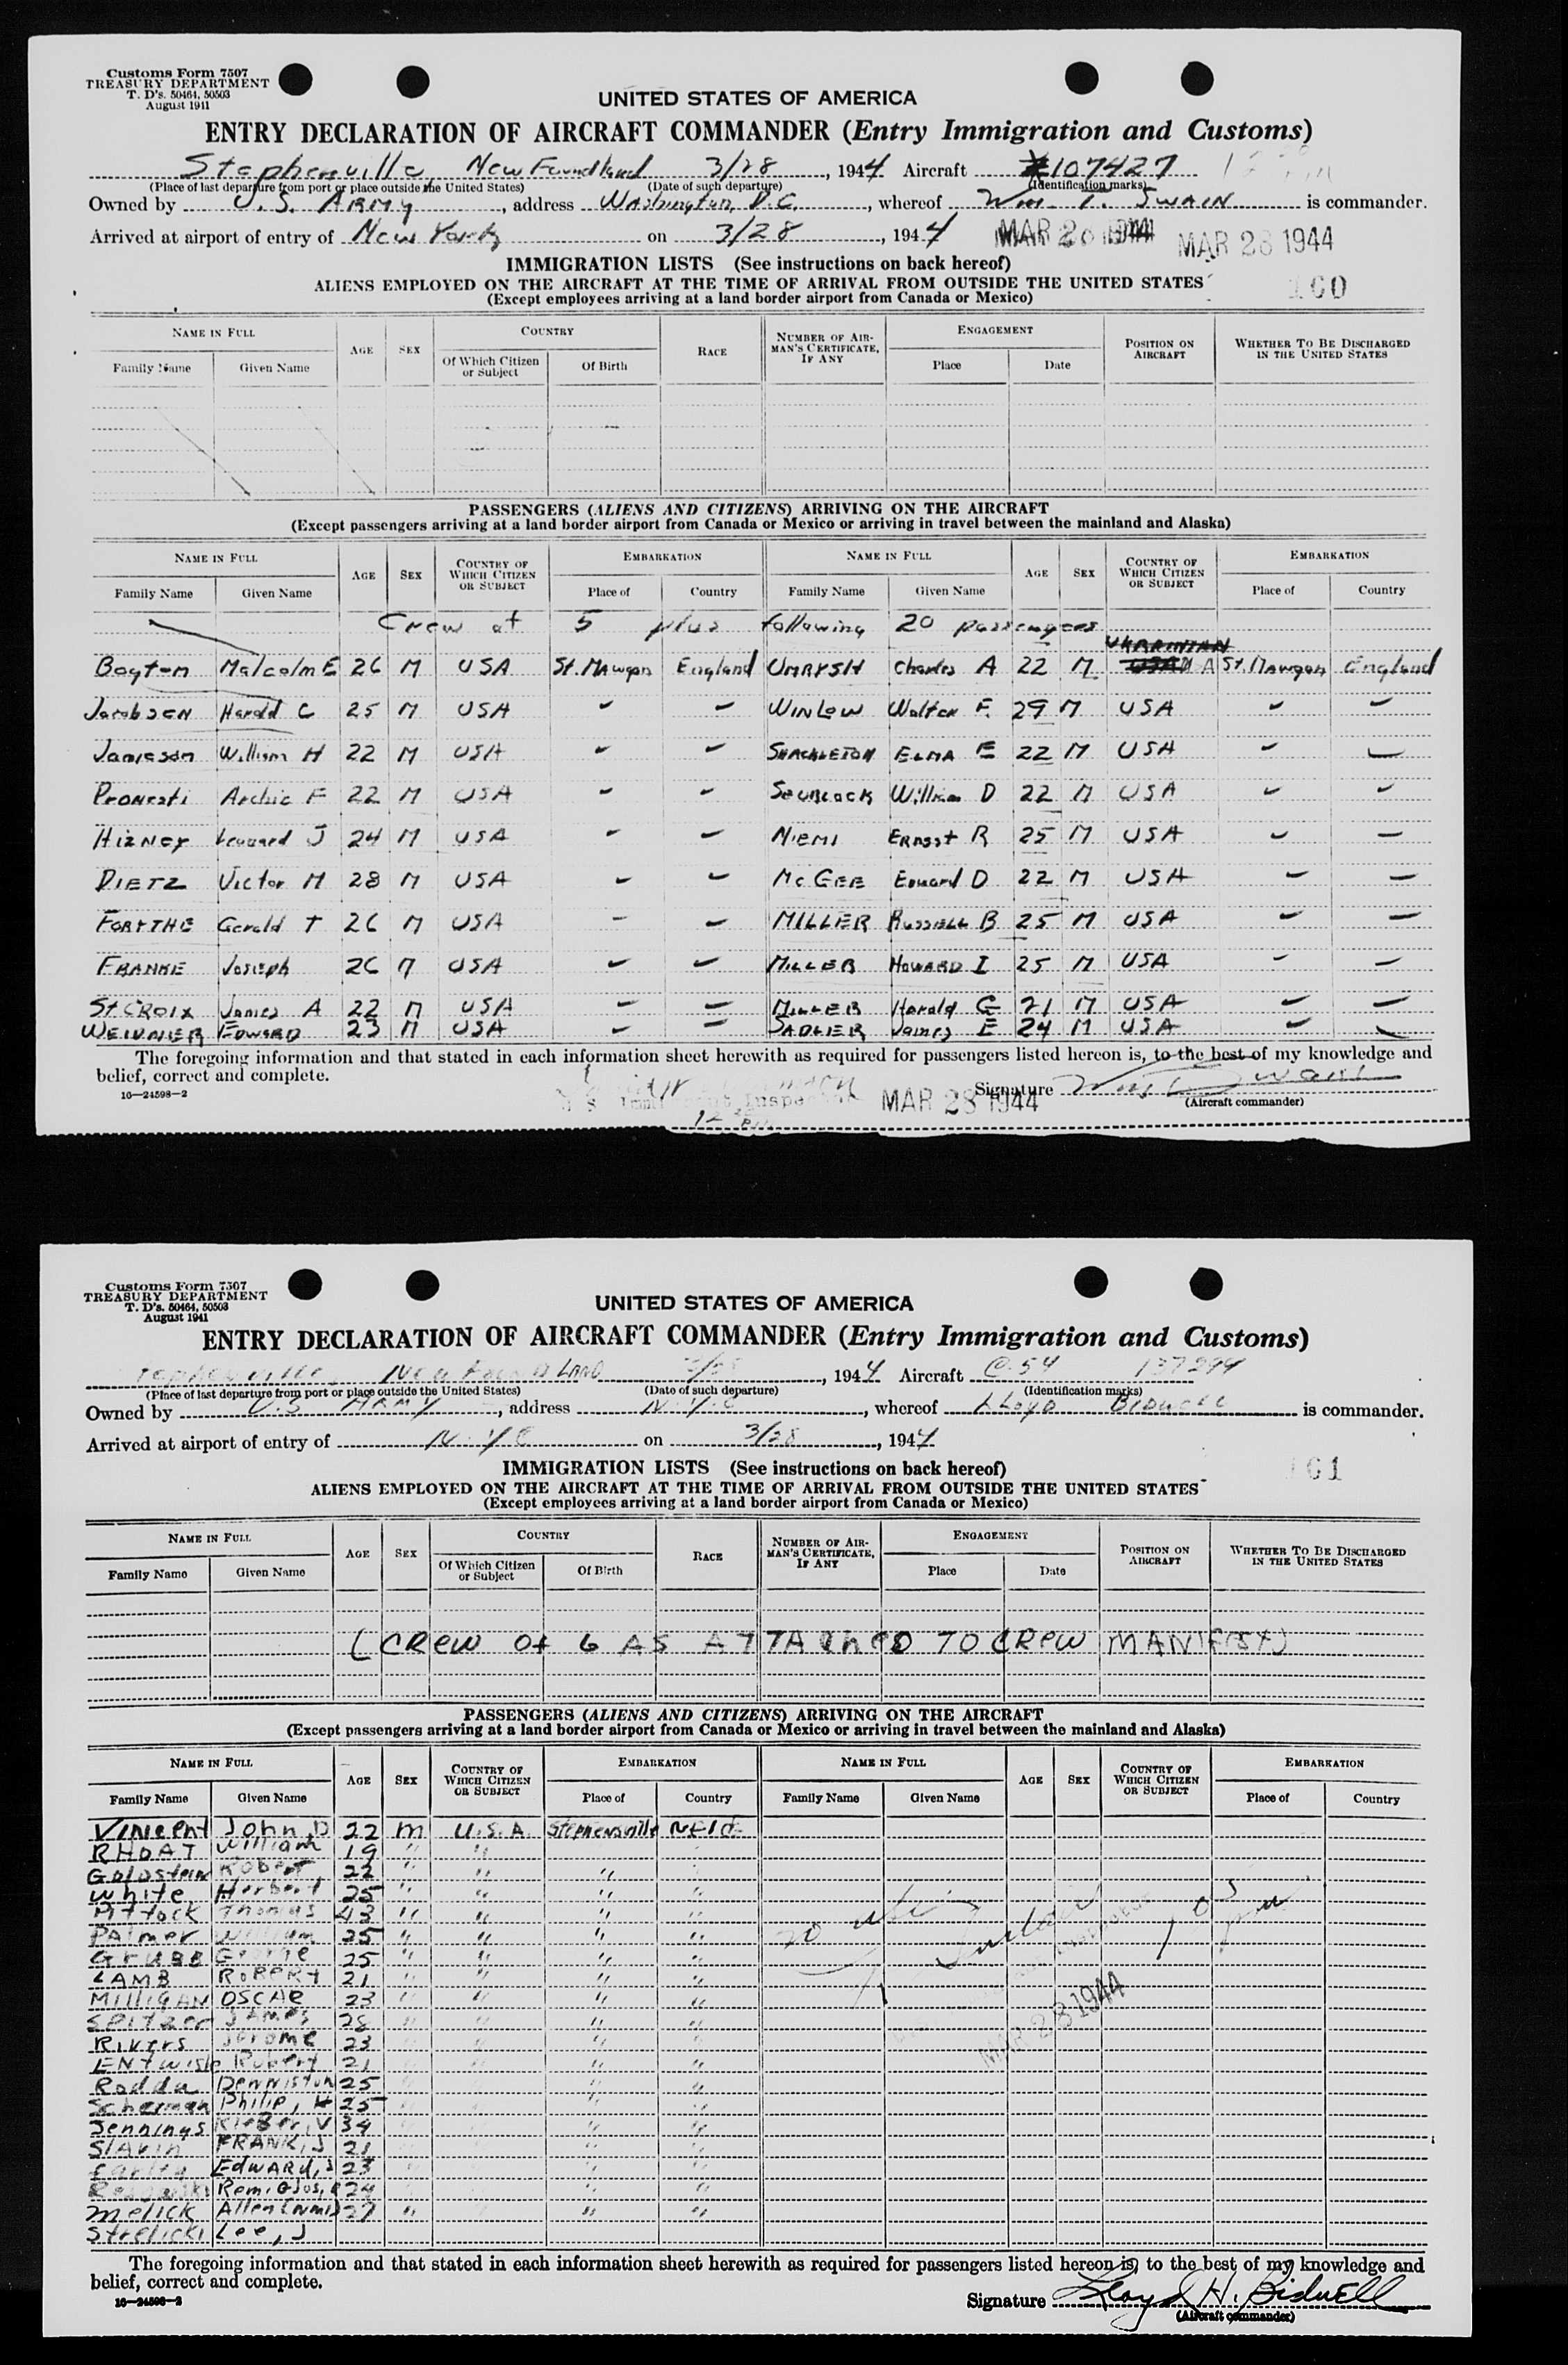 Customs Form 7507
TREASURY DEPARTMENT
T. D's. 50464, 50503
August 1941
UNITED STATES OF AMERICA
ENTRY DECLARATION OF AIRCRAFT COMMANDER (Entry Immigration and Customs)
Stephenville, New Foundland 3/28, 1944 Aircraft 107427
(Place of last departure from port or place outside the United States) (Date of such departure) (Identification marks)
Owned by U.S. Army, address Washington, D.C., whereof Wm. T. SWAIN is commander.
Arrived at airport of entry of New York on 3/28, 1944 MAR 28 1944
IMMIGRATION LISTS (See instructions on back hereof)
ALIENS EMPLOYED ON THE AIRCRAFT AT THE TIME OF ARRIVAL FROM OUTSIDE THE UNITED STATES
(Except employees arriving at a land border airport from Canada or Mexico)
NAME IN FULL AGE SEX COUNTRY RACE NUMBER OF AIRMAN'S CERTIFICATE, IF ANY ENGAGEMENT POSITION ON AIRCRAFT WHETHER TO BE DISCHARGED IN THE UNITED STATES
Family Name Given Name Of Which Citizen or Subject Of Birth Place Date
PASSENGERS (ALIENS AND CITIZENS) ARRIVING ON THE AIRCRAFT
(Except passengers arriving at a land border airport from Canada or Mexico or arriving in travel between the mainland and Alaska)
NAME IN FULL AGE SEX COUNTRY OF WHICH CITIZEN OR SUBJECT EMBARKATION NAME IN FULL AGE SEX COUNTRY OF WHICH CITIZEN OR SUBJECT EMBARKATION
Family Name Given Name Place of Country Family Name Given Name Place of Country
Crew of 5 plus following 20 passengers
Boyton Malcolm E 26 M USA St. Mawgan England UMRYSH Charles A 22 M UKRAINIAN St. Mawgan England
Jacobsen Harold C 25 M USA WINLOW Walter F. 29 M USA
Jamieson William H 22 M USA SHACKLETON ELMA E 22 M USA
Pronesti Archie F 22 M USA William D 22 M USA
HIZNEY Leonard J 24 M USA NIEMI ERNEST R 25 M USA
DIETZ Victor M 28 M USA McGEE Edward D 22 M USA
FORYTHE Gerald T 26 M USA MILLER RUSSELL B 25 M USA
FRANKE Joseph 26 M USA MILLER HOWARD I 25 M USA
St. CROIX James A 22 M USA MILLER Harold G 21 M USA
WEIDNER EDWARD 23 M USA SADLIER James E 24 M USA
The foregoing information and that stated in each information sheet herewith as required for passengers listed hereon is, to the best of my knowledge and
belief, correct and complete.
16—24598-2
MAR 28 1944
Signature Wm T Swain
(Aircraft commander)
Customs Form 7507
TREASURY DEPARTMENT
T. D's. 50464, 50503
August 1941
UNITED STATES OF AMERICA
ENTRY DECLARATION OF AIRCRAFT COMMANDER (Entry Immigration and Customs)
Stephenville, New Foundland 3/28, 1944 Aircraft C-54 137299
(Place of last departure from port or place outside the United States) (Date of such departure) (Identification marks)
Owned by U.S ARMY, address N.Y.C, whereof Lloyd Bidwell is commander.
Arrived at airport of entry of N.Y.C on 3/28, 1944
IMMIGRATION LISTS (See instructions on back hereof)
ALIENS EMPLOYED ON THE AIRCRAFT AT THE TIME OF ARRIVAL FROM OUTSIDE THE UNITED STATES
(Except employees arriving at a land border airport from Canada or Mexico)
NAME IN FULL AGE SEX COUNTRY RACE NUMBER OF AIRMAN'S CERTIFICATE, IF ANY ENGAGEMENT POSITION ON AIRCRAFT WHETHER TO BE DISCHARGED IN THE UNITED STATES
Family Name Given Name Of Which Citizen or Subject Of Birth Place Date
(CREW Of 6 AS ATTAChED TO CREW MANIFEST)
PASSENGERS (ALIENS AND CITIZENS) ARRIVING ON THE AIRCRAFT
(Except passengers arriving at a land border airport from Canada or Mexico or arriving in travel between the mainland and Alaska)
NAME IN FULL AGE SEX COUNTRY OF WHICH CITIZEN OR SUBJECT EMBARKATION NAME IN FULL AGE SEX COUNTRY OF WHICH CITIZEN OR SUBJECT EMBARKATION
Family Name Given Name Place of Country Family Name Given Name Place of Country
Vincent John D 22 m U.S.A. Stephensville
RHOAT William 19 "
Goldstein Robert 22 " " " "
White Herbert 25 " " " "
Pittock Thomas 43 " " " "
PAlmer William 25 " " " "
GruBB George 25 " " " "
LAMB RobERt 21 " " " "
MilliGAN OSCAR 23 " " " "
Spitzer James 28 " "
Rivers Jerome 23 " "
ENtwisle Robert 21 " "
Rodda Denniston 25 " "
Scherman Philip, H 25 " "
Jennings Kleber, V 34 " "
SlAvin FRANK, J 21 " "
EdwARd, J 23 " "
24 " "
melick Allen (NMI) 27 " " "
Strelicki Lee, J
MAR 28 1944
The foregoing information and that stated in each information sheet herewith as required for passengers listed hereon is, to the best of my knowledge and
belief, correct and complete.
16—24598-2
Signature Lloyd H. Bidwell
(Aircraft commander)